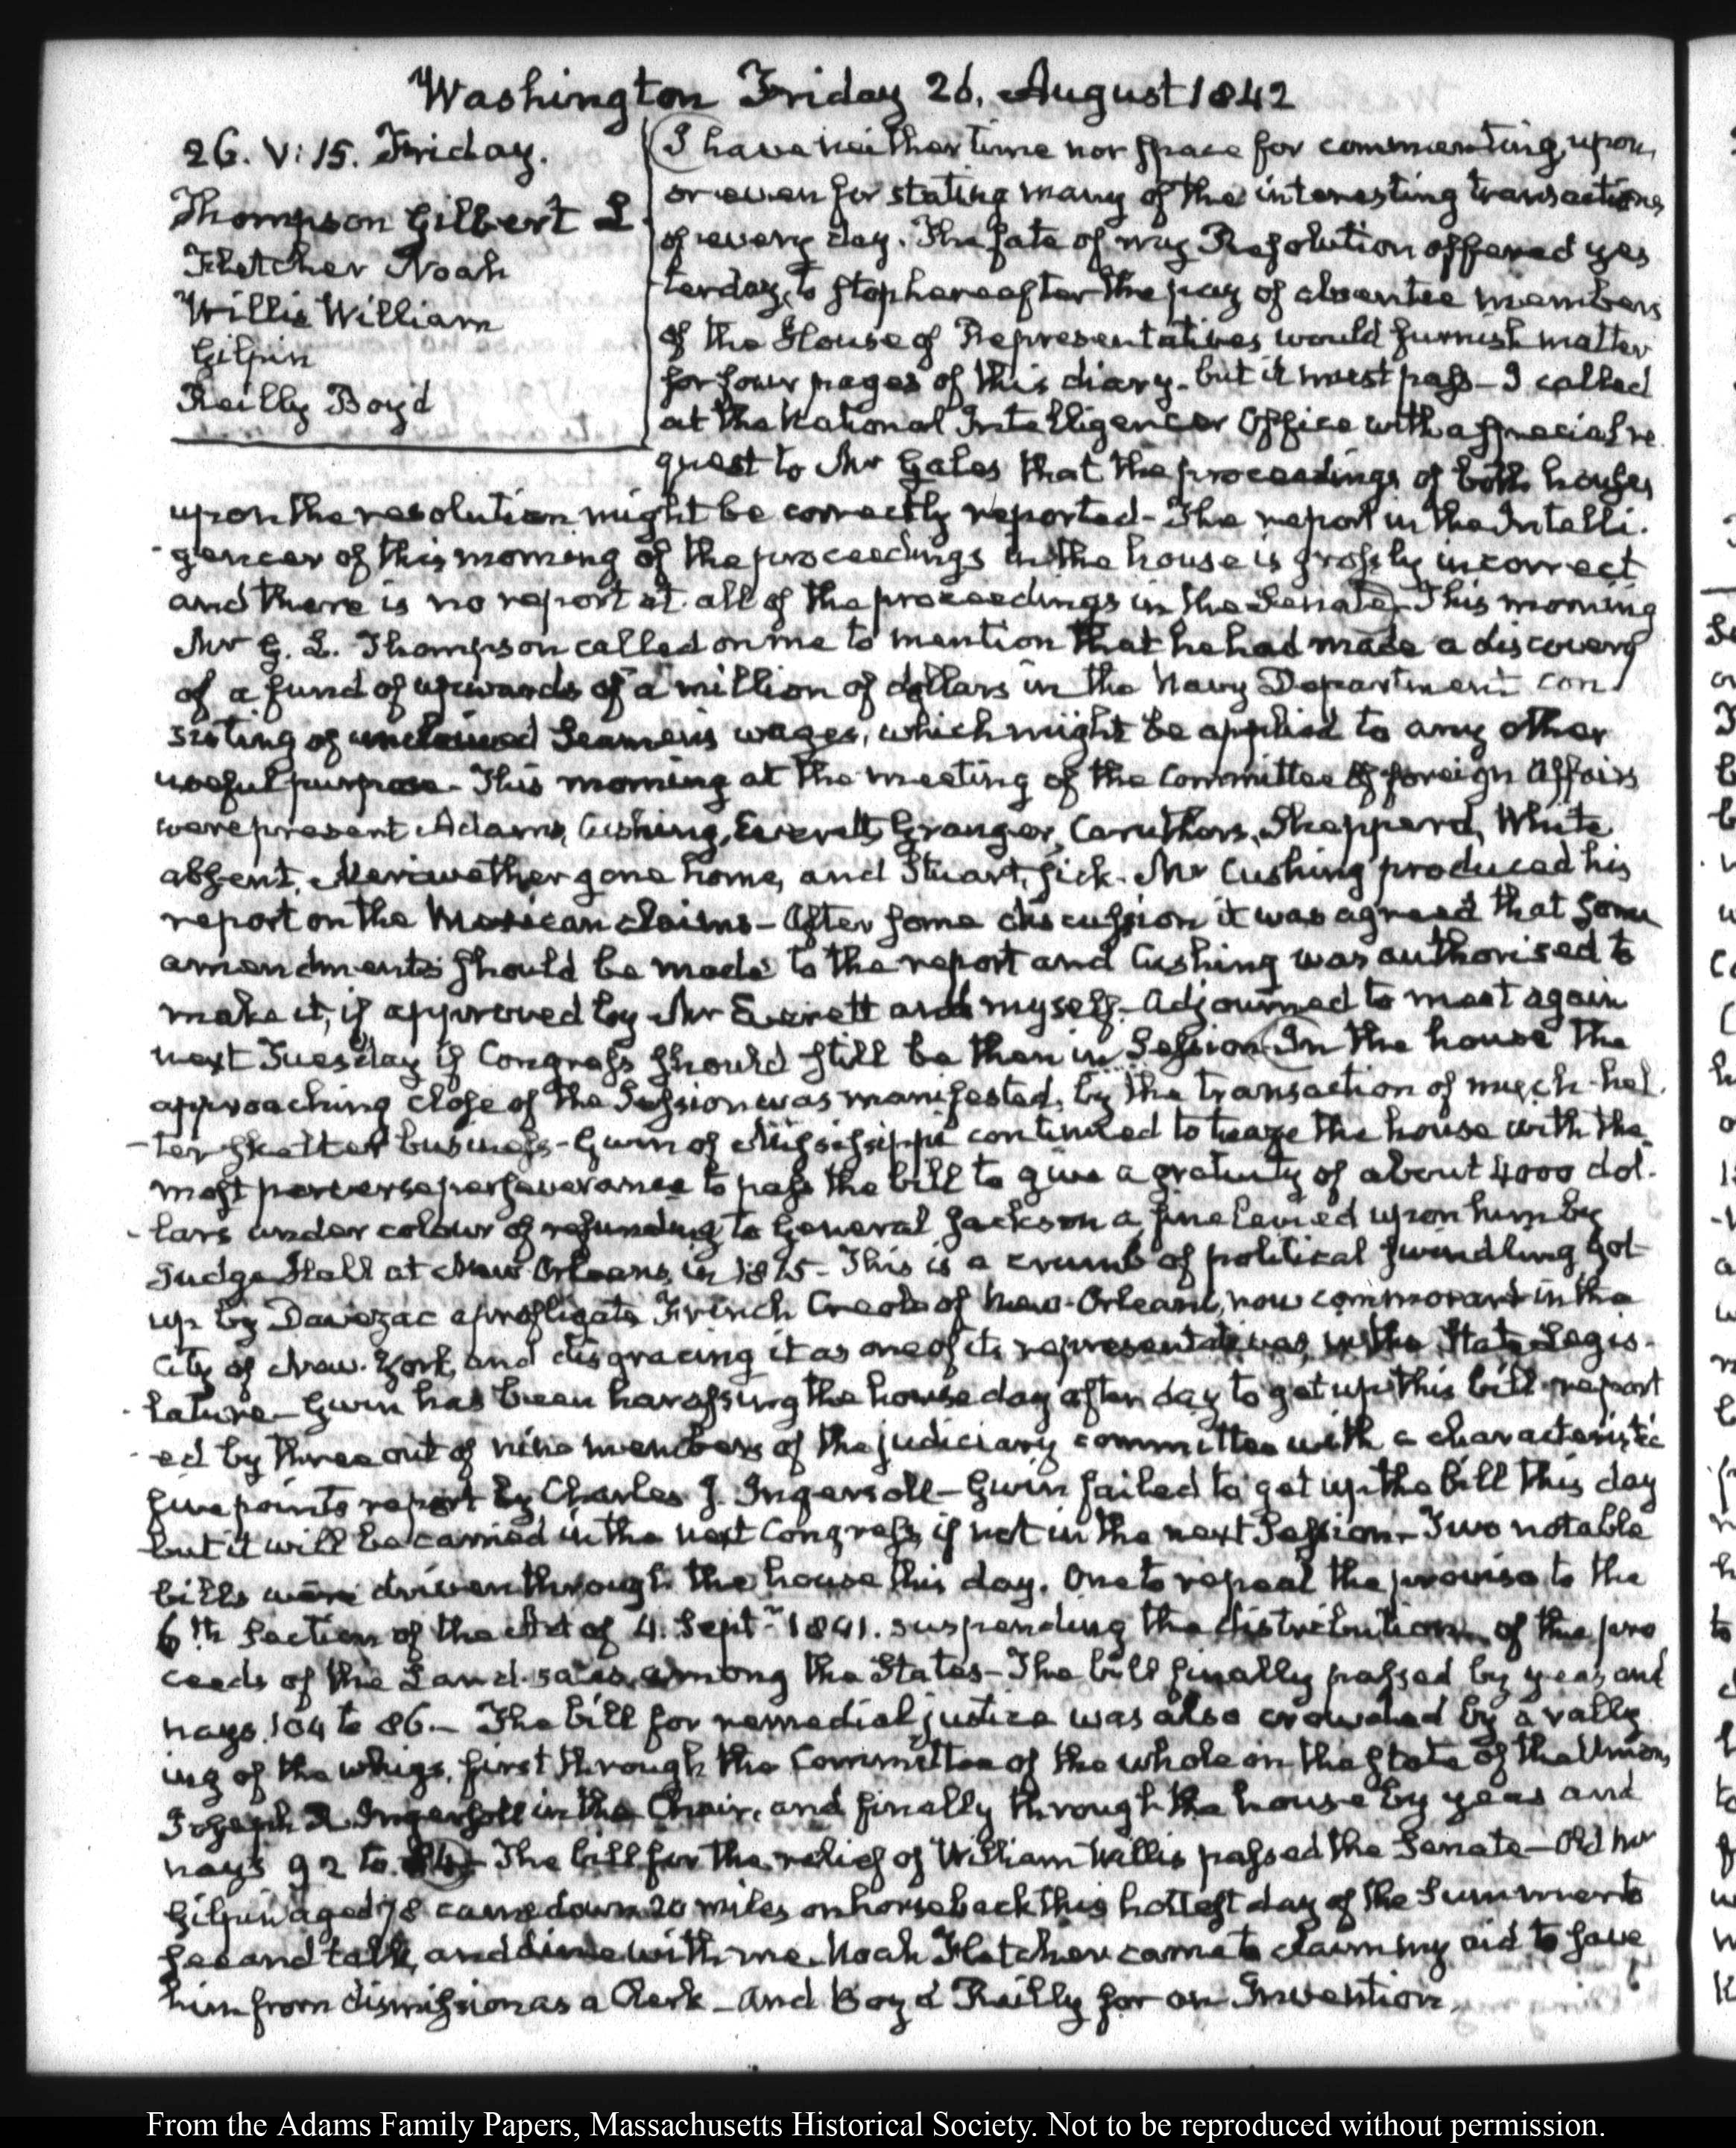 Washington Friday 26. August 1842
26. V:15. Friday.
Thompson Gilbert L
Fletcher Noah
Willis William
Gilpin
Reilly Boyd
I have neither time nor space for commenting upon,
or even for stating many of the interesting transactions
of every day. The fate of my Resolution offered yes
terday, to stop hereafter the pay of absentee members
of the House of Representatives would furnish matter
for four pages of this diary - but it must pass - I called
at the National Intelligencer Office with a special re
quest to Mr Gales that the proceedings of both houses
upon the resolution might be correctly reported - The report in the Intelli-
gencer of this morning of the proceedings in the house is grossly incorrect
and there is no report at all of the proceedings in the Senate. This morning
Mr G. L. Thompson called on me to mention that he had made a discovery
of a fund of upwards of a million of dollars in the Navy Department con
sisting of unclaimed Seamen's wages, which might be applied to any other
useful purpose - This morning at the meeting of the Committee of foreign Affairs
were present Adams, Cushing, Everett, Granger, Caruthers, Shepperd, White
absent, Meriwether gone home, and Stuart, sick - Mr Cushing produced his
report on the Mexican claims - After some discussion it was agreed that some
amendments should be made to the report and Cushing was authorised to
make it, if approved by Mr Everett and myself - Adjourned to meet again
next Tuesday if Congress should still be then in Session In the house the
approaching close of the Session was manifested, by the transaction of much hel-
-ter skelter business - Gwin of Mississippi continued to teaze the house with the
most perverse perseverance to pass the bill to give a gratuity of about 4000 dol-
-lars under colour of refunding to General Jackson a fine levied upon him by
Judge Hall at New Orleans in 1815 - This is a crumb of political swindling got
up by Davezac a profligate French Creole of New-Orleans, now commorant in the
City of New-York, and disgracing it as one of its representatives in the State Legis-
-lature - Gwin has been harassing the house day after day to get up this bill report
-ed by three out of nine members of the judiciary committee with a characteristic
five points report by Charles J. Ingersoll - Gwin failed to get up the bill this day
but it will be carried in the next Congress if not in the next Session - Two notable
bills were driven through the house this day. One to repeal the proviso to the
6th Section of the Act of 4. Septr 1841. suspending the distribution of the pro
ceeds of the Land sales among the States - The bill finally passed by yeas and
nays 104 to 86 - The bill for remedial justice was also crowded by a rally
ing of the whigs, first through the Committee of the whole on the state of the Union,
Joseph R Ingersoll in the Chair, and finally through the house by yeas and
nays 92 to The bill for the relief of William Willis passed the Senate - Old Mr
Gilpin aged 78 came down 20 miles on horseback this hottest day of the Summer to
see and talk, and dine with me. Noah Fletcher came to claim my aid to save
him from dismission as a Clerk - and Boyd Reilly for an Invention.
From the Adams Family Papers, Massachusetts Historical Society. Not to be reproduced without permission.